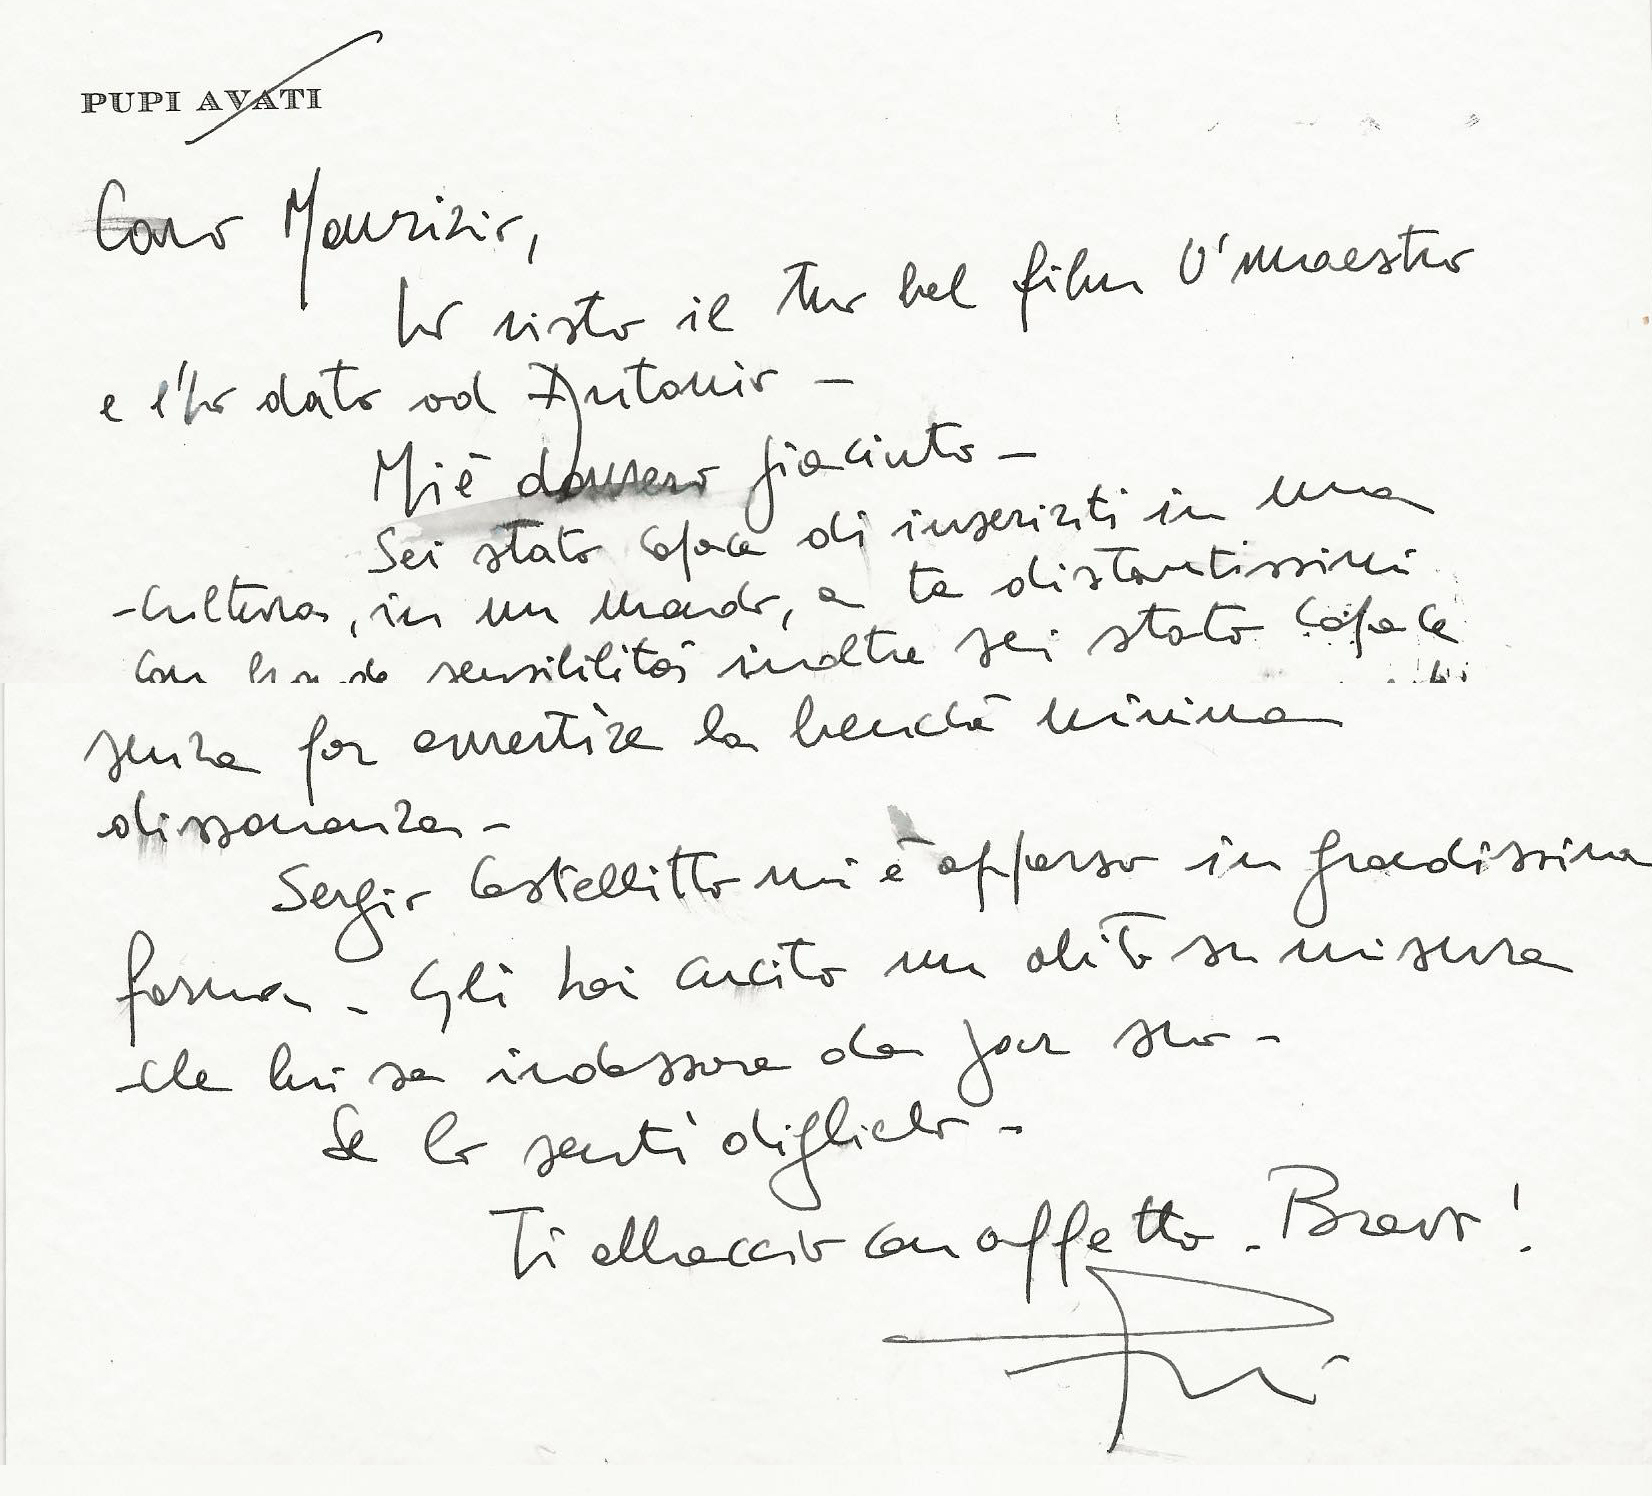 PUPI AVATI
Caro Maurizio,
ho visto il tuo bel film O' maestro
e l'ho dato ad Antonio -
Mi è davvero piaciuto -
Sei stato capace di inserirti in una
cultura, in un mondo, a te distantissimi
con sensibilità inoltre sei stato capace
senza far avvertire la benché minima
dissonanza -
Sergio Castellitto mi è apparso in grandissima
forma - Gli hai cucito un abito su misura
che lui sa indossare da par suo -
Se lo senti diglielo -
Ti abbraccio con affetto. Bravo!